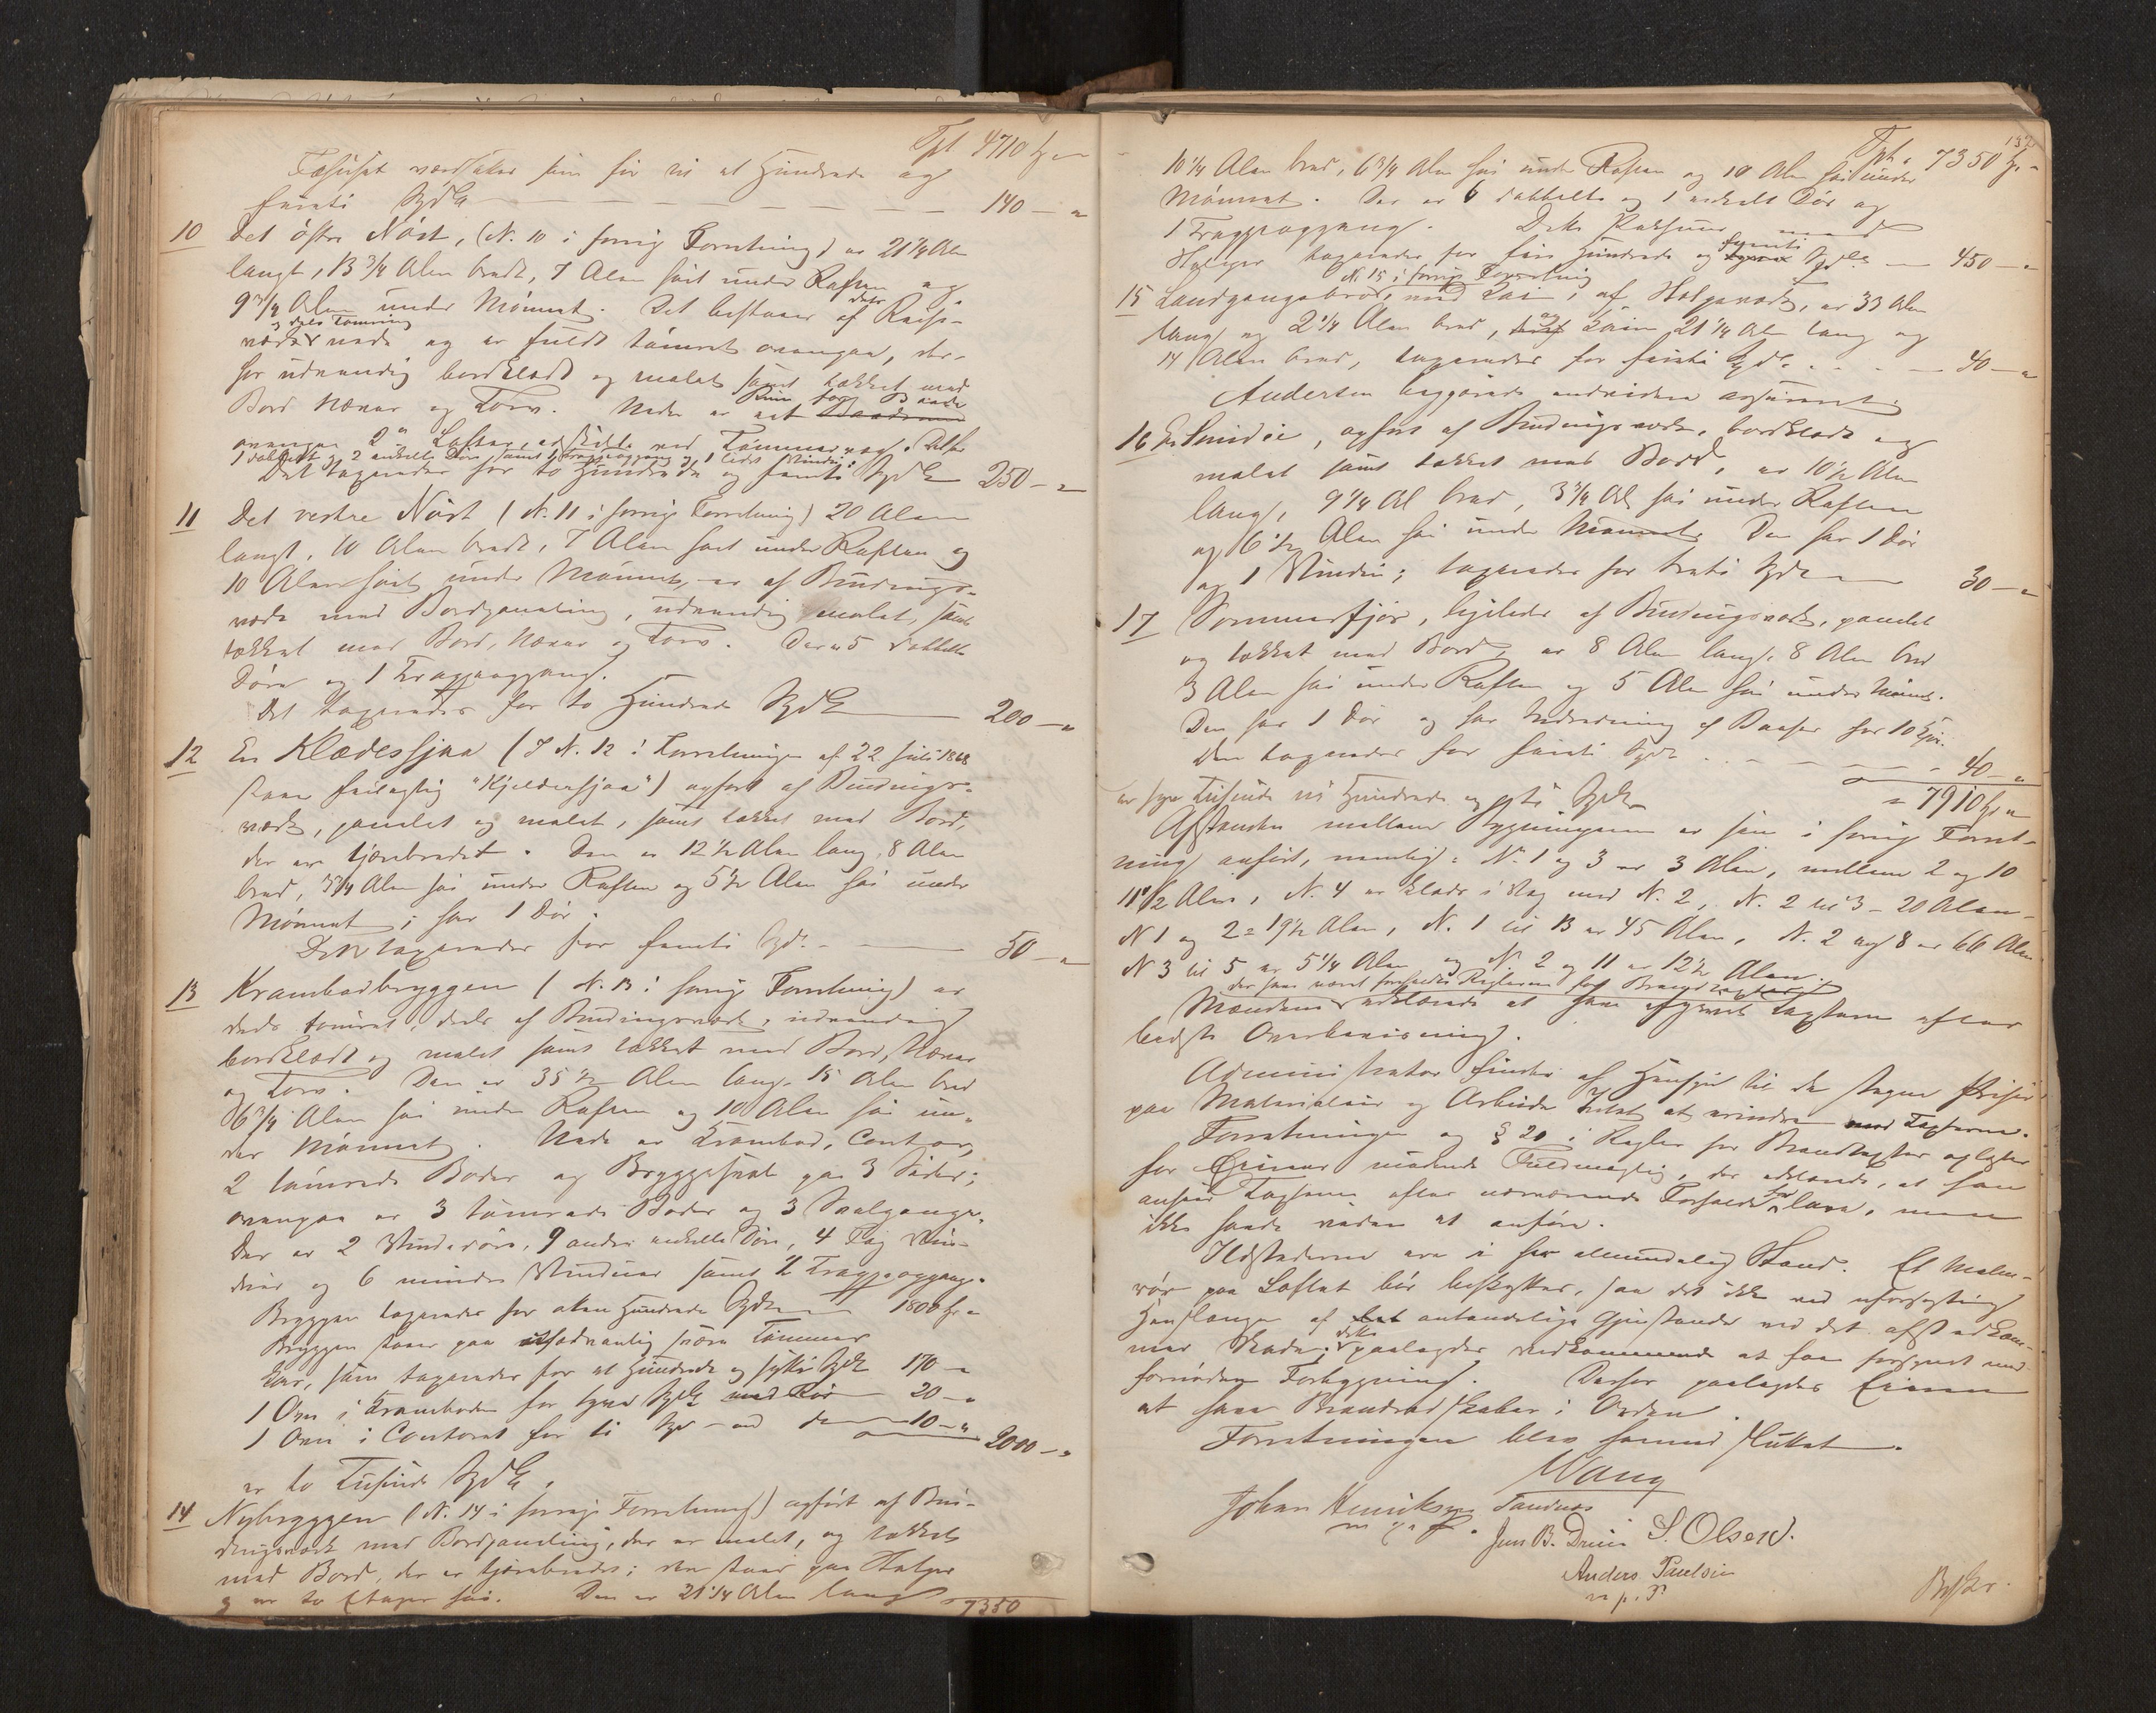 Tpt 4710 Sp "
Fæhuset værdsættes som før ni et Hundrede og
førti Spdlr — 140 — "
10 Det østre Nøst, (N. 10 i forrig Forretning) er 21 1/4 Alen
langt, 13 3/4 Alen bredt, 7 Alen høit under Raften og
9 3/4 Alen under Mønnet. Det bestaaer af dels Reise-
værk og dels Tømring nede og er fuldt tømret ovenpaa, der-
for udvendig bordklædt og malet samt tækket med
Bord Næver og Torv. Nede er eet Rum for Baade
ovenpaa 2 Lofter, adskildte ved Tømmervæg. Det har
1 dobbelt og 2 enkelte Døre samt 1 Trappeopgang og 1 lidet Vindu.
Det taxeredes for to Hundrede og femti Spdlr 250 — "
11 Det vestre Nøst (N. 11 i forrige Forretning) 20 Alen
langt, 10 Alen bredt, 7 Alen høit under Raften og
10 Alen høit under Mønnet, er af Bindings-
værk med Bordpaneling, udvendig malet, samt
tækket med Bord, Næver og Torv. Der er 5 dobbelte
Døre og 1 Trappeopgang.
Det taxeredes for to Hundrede Spdlr — 200 — "
12 En Klædessjaa (I N. 12 i Forretningen af 22 Juli 1868
staar feilagtig "Kjeldersjaa") opført af Bindings-
værk, panelet og malet, samt tækket med Bord,
der er tjærebredet. Den er 12 1/2 Alen lang, 8 Alen
bred, 3 3/4 Alen høi under Raften og 5 1/2 Alen høi under
Mønnet; har 1 Dør.
Den taxeredes for femti Spd. — 50 — "
13 Krambodbryggen (N. 13 i forrig Forretning) er
dels tømret, dels af Bindingsværk, udvendig
bordklædt og malet samt tækket med Bord, Næver
og Torv. Den er 35 1/2 Alen lang, 15 Alen bred
6 3/4 Alen høi under Raften og 10 Alen høi un-
der Mønnet. Nede er Krambod, Contor,
2 tømrede Boder og Bryggesval paa 3 Sider;
ovenpaa er 3 tømrede Boder og 3 Svalgange.
Der er 2 Vindedøre, 9 andre enkelte Døre, 4 Fag Vin-
duer og 6 mindre Vinduer samt 2 Trappeopgange.
Bryggen taxeredes for atten Hundrede Spdlr 1800 Sp "
Bryggen staar paa usædvanlig svære Tømmer
kar, som taxeredes for et Hundrede og sytti Spdlr 170 — "
1 Ovn i Kramboden for tyve Spdlr med Rør 20 — "
1 Ovn i Contoret for ti Spd — 10 — "
2000 — "
er to Tusinde Spdlr.
14 Nybryggen (N. 14 i forrige Forretning) opført af Bin-
dingsværk med Bordpaneling, der er malet, og tækket
med Bord, der er tjærebredet; den staar paa Stolper
og er to Etager høi. Den er 21 1/4 Alen lang
7350
132
Tpt. 7350 Sp "
10 1/4 Alen bred, 6 3/4 Alen høi under Raften og 10 Alen høi under
Mønnet. Der er 6 dobbelte og 1 enkelt Dør og
1 Trappeopgang. Dette Pakhuus med
Stolper taxeredes for fire Hundrede og femti Spdlr — 450 — "
15 Landgangsbro, N. 15 i forrige Forretning med Kai, af Stolpeværk, er 33 Alen
lang og 2 1/4 Alen bred, og Kaien 21 1/4 Alen lang og
14 Alen bred, taxeredes for førti Spdlr . . . — 40 — "
Andersen begjærede endvidere assureret:
16 En Smidie, opført af Bindingsværk, bordklædt og
malet samt tækket med Bord, er 10 1/2 Alen
lang, 9 1/4 Al bred, 3 3/4 Al høi under Raften
og 6 1/2 Alen høi under Mønnet. Den har 1 Dør
og 1 Vindu; taxeredes for treti Spdlr — 30 — "
17 Sommerfjøs, ligeledes af Bindingsværk, panelet
og tækket med Bord, er 8 Alen lang, 8 Alen bred
3 Alen høi under Raften og 5 Alen høi under Mønnet.
Den har 1 Dør og har Indredning af Baase for 10 Kjør.
Den taxeredes for førti Spd. . — 40 — "
er syv Tusinde ni Hundrede og ti Spdlr = 7910 Sp "
Afstanden mellem Bygningerne er som i forrig Forret-
ning anført, nemlig: N. 1 og 3 er 3 Alen, mellem 2 og 10
11 1/2 Alen, N. 4 er klods i Væg med N. 2, N. 2 til 3 – 20 Alen
N 1 og 2 = 19 1/2 Alen, N. 1 til 13 er 45 Alen, N. 2 og 8 er 66 Alen
N 3 til 5 er 5 1/4 Alen og N. 2 og 11 er 12 1/2 Alen.
der har været foreholdt Reglerne for Brandtaxter
Mændene erklærede at have afgivet Taxterne efter
bedste Overbeviisning.
Administrator finder af Hensyn til de stegne Priser
paa Materialier og Arbeide Intet at erindre mod Taxterne.
Forretningen og § 20 i Regler for Brandtaxter oplæstes
for Eierens mødende Fuldmægtig, der erklærede, at han
ansaa Taxterne efter nærværende Forholde for lave, men
ikke havde videre at anføre.
Ildstederne ere i her almindelig Stand. Et Malm-
rør paa Loftet bør beskyttes, saa det ikke ved uforsigtig
Henslængen af let antændelige Gjenstande ved det afstedkom-
mer Skade; dette paalagdes Vedkommende at faa forsynet med
fornøden Forbygning. Derhos paalagdes Eieren
at have Brandredskaber i Orden.
Forretningen blev hermed sluttet.
Wang
Johan Henriksen Sandnes
m. p. P.
Jens B. Dreier S. Olsen.
Anders Paulsen
m p. P
Beskr.